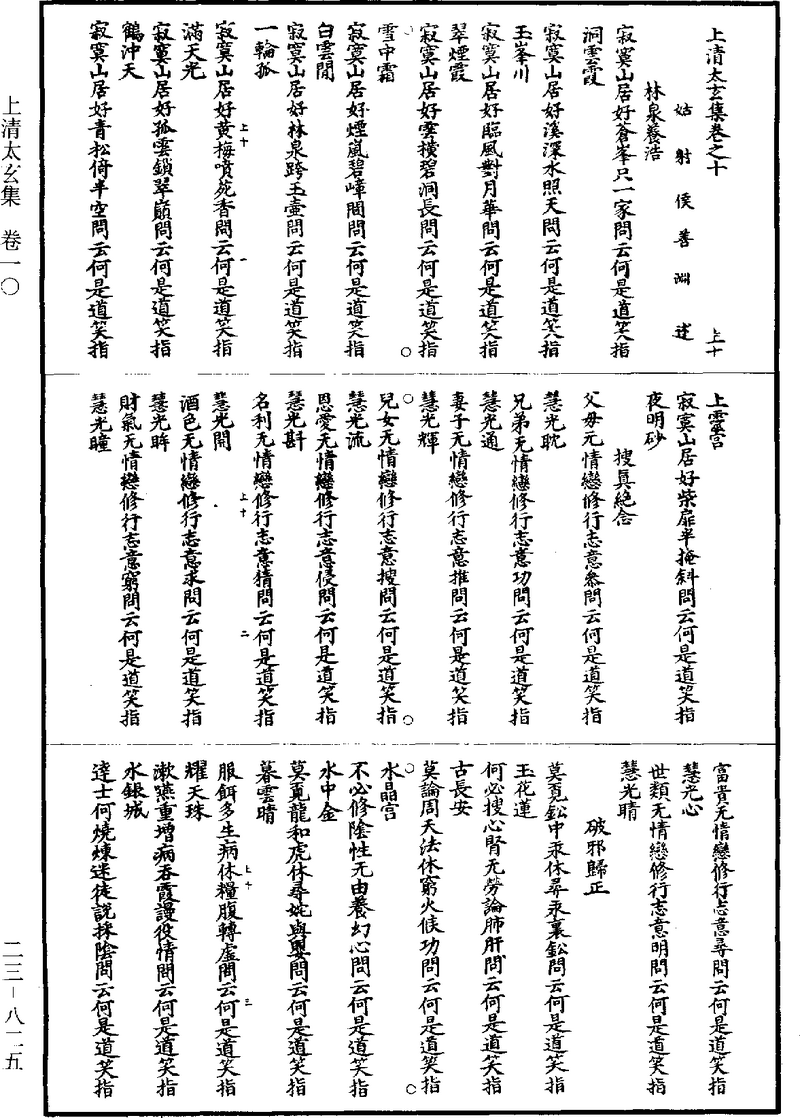 上清太玄集卷之十
上十
姑射侯善淵述
林泉養浩
寂寞山居好蒼峯尺一家問云何是道笑指
洞雲霞
寂寞山居好溪深水照天問云何是道笑指
玉峯川
寂寞山居好臨風對月華問云何是道笑指
翠煙霞
寂寞山居好雲橫碧洞長問云何是道笑指
雪中霜
寂寞山居好煙嵐碧嶂間問云何是道笑指
白雲閒
寂寞山居好林泉跨玉壺問云何是道笑指
一輪孤
寂寞山居好黃梅噴菀香問云何是道笑指
上十 一
滿天光
寂寞山居好孤雲鎖翠巔問云何是道笑指
鶴沖天
寂寞山居好青松倚半空問云何是道笑指
上靈宮
寂寞山居好柴扉半掩斜問云何是道笑指
夜明砂
搜真絕念
父母无情戀修行志意叅問云何是道笑指
慧光耽
兄弟无情戀修行志意功問云何是道笑指
慧光通
妻子无情戀修行志意推問云何是道笑指
慧光輝
兒女无情戀修行志意搜問云何是道笑指
慧光流
恩愛无情戀修行志意侵問云何是道笑指
慧光斟
名利无情戀修行志意猜問云何是道笑指
上十 二
慧光開
酒色无情戀修行志意求問云何是道笑指
慧光眸
財氣无情戀修行志意窮問云何是道笑指
慧光瞳
富貴无情戀修行志意尋問云何是道笑指
慧光心
世類无情戀修行志意明問云何是道笑指
慧光晴
破邪歸正
莫覓鈆中汞休尋汞裏鈆問云何是道笑指
玉花蓮
何必搜心腎无勞論肺肝問云何是道笑指
古長安
莫論周天法休窮火候功問云何是道笑指
水晶宮
不必修陰性无由養幻心問云何是道笑指
水中金
莫覓龍和虎休尋姹與嬰問云何是道笑指
暮雲晴
服餌多生病休糧腹轉虛問云何是道笑指
上十 三
耀天珠
漱嚥重增病吞霞謾役情問云何是道笑指
水銀城
達士何燒煉迷徒說採陰問云何是道笑指
上清太玄集 卷一〇
二三－八二五